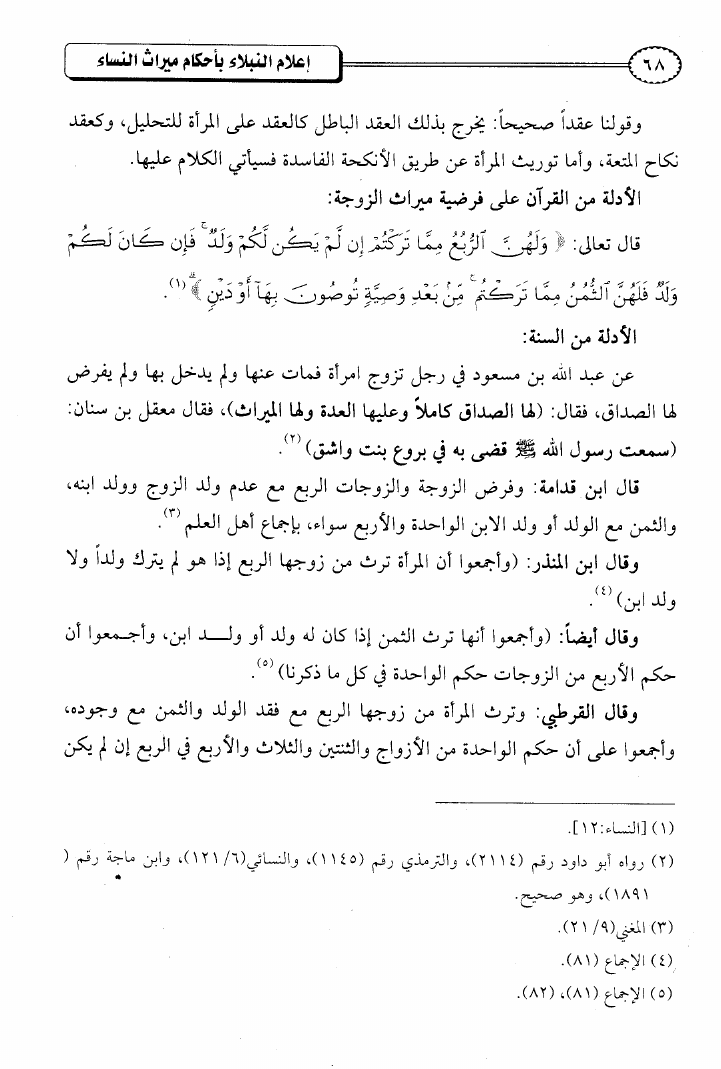 ٦٨
إعلام النبلاء بأحكام ميراث النساء
وقولنا عقداً صحيحاً: يخرج بذلك العقد الباطل كالعقد على المرأة للتحليل، وكعقد
نكاح المتعة، وأما توريث المرأة عن طريق الأنكحة الفاسدة فسيأتي الكلام عليها.
الأدلة من القرآن على فرضية ميراث الزوجة:
قال تعالى: ﴿ وَلَهُنَّ ٱلرُّبُعُ مِمَّا تَرَكْتُمْ إِن لَّمْ يَكُن لَّكُمْ وَلَدٌ ۚ فَإِن كَانَ لَكُمْ
وَلَدٌ فَلَهُنَّ ٱلثُّمُنُ مِمَّا تَرَكْتُم ۚ مِّنۢ بَعْدِ وَصِيَّةٍ تُوصُونَ بِهَآ أَوْ دَيْنٍ ۗ ﴾(١).
الأدلة من السنة:
عن عبد الله بن مسعود في رجل تزوج امرأة فمات عنها ولم يدخل بها ولم يفرض
لها الصداق، فقال: (لها الصداق كاملاً وعليها العدة ولها الميراث)، فقال معقل بن سنان:
(سمعت رسول الله ﷺ قضى به في بروع بنت واشق)(٢).
قال ابن قدامة: وفرض الزوجة والزوجات الربع مع عدم ولد الزوج وولد ابنه،
والثمن مع الولد أو ولد الابن الواحدة والأربع سواء، بإجماع أهل العلم(٣).
وقال ابن المنذر: (وأجمعوا أن المرأة ترث من زوجها الربع إذا هو لم يترك ولداً ولا
ولد ابن)(٤).
وقال أيضاً: (وأجمعوا أنها ترث الثمن إذا كان له ولد أو ولـــد ابن، وأجـمعوا أن
حكم الأربع من الزوجات حكم الواحدة في كل ما ذكرنا)(٥).
وقال القرطبي: وترث المرأة من زوجها الربع مع فقد الولد والثمن مع وجوده،
وأجمعوا على أن حكم الواحدة من الأزواج والثنتين والثلاث والأربع في الربع إن لم يكن
(١) [النساء:١٢].
(٢) رواه أبو داود رقم (٢١١٤)، والترمذي رقم (١١٤٥)، والنسائي(٦/١٢١)، وابن ماجة رقم (
١٨٩١)، وهو صحيح.
(٣) المغني(٩/٢١).
(٤) الإجماع (٨١).
(٥) الإجماع (٨١)، (٨٢).